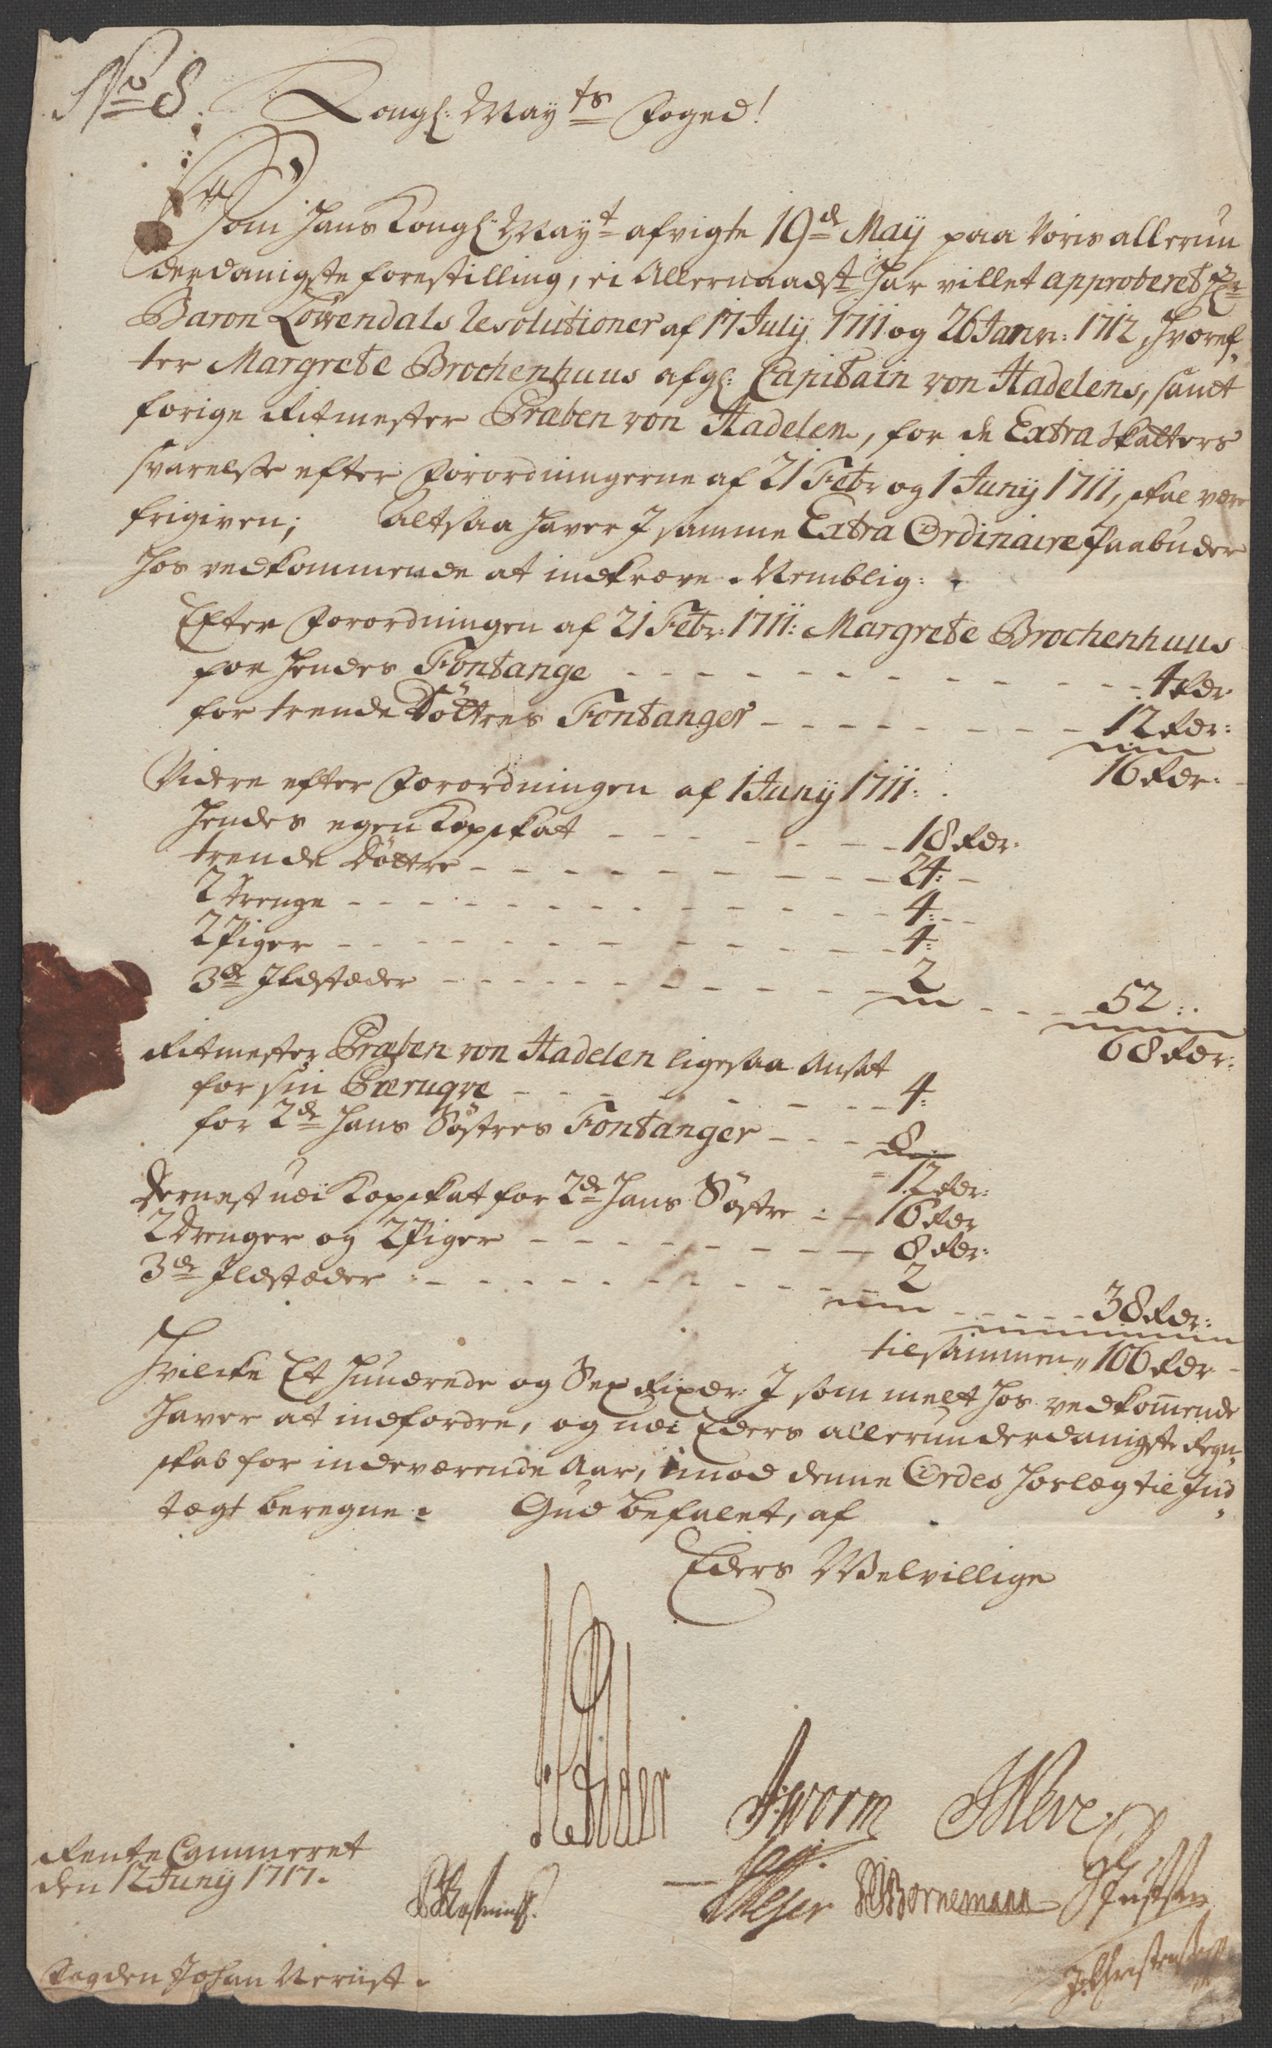 No 8.
Kongl: Mayts Foged!
Som Hans Kongl: Mayt afvigte 19de Maij paa Voris allerun
derdanigste forestilling, ei Allernaadst Har villet approberet Hr
Baron Löwendals Resolutioner af 17 July 1711 og 26 Janv: 1712, Hvoref-
ter Margrete Brochenhuus afgl: Capitain von Hadelens, samt
forige Ritmester Præben von Hadelen, for de Extra Skatters
svarelse efter Forordningerne af 21 Febr og 1 Junij 1711, skal være
frigiven; Altsaa haver I samme Extra Ordinaire Paabuder
hos vedkommende at indkræve. Nemblig:
Efter Forordningen af 21 Febr: 1711: Margrete Brochenhuus
for hendes Fontange 4 Rdr
for trende Döttres Fontanger 12 Rdr:
16 Rdr:
Videre efter Forordningen af 1 Junij 1711:
Hendes egen Kopskat 18 Rdr:
trende Döttre 24:
2 Drenge 4:
2 Piger 4:
3de Ildstæder 2
52:
68 Rdr:
Ritmester Præben von Hadelen ligesaa Ansat
for sin Pæruqve 4:
for 2de Hans Söstres Fontanger 8
12 Rdr:
Dernest udi Kopskat for 2de Hans Söstre 16 Rdr
2 Drenger og 2 Piger 8 Rdr:
3de Ildstæder 2
38 Rdr:
tilsammen 106 Rdr
Hvilcke Et Hundrede og Sex Rixdr: I som melt hos vedkommende
haver at indfordre, og udi Eders allerunderdanigste Regn-
skab for indeværende Aar, imod denne Ordres hoslæg til Ind-
tægt beregne. Gud befalet, af
Eders Velvillige
J Worm
Meyer Bornemann
Rente Cammeret
den 12 Junij 1717.
Fogden Johan Nernst.